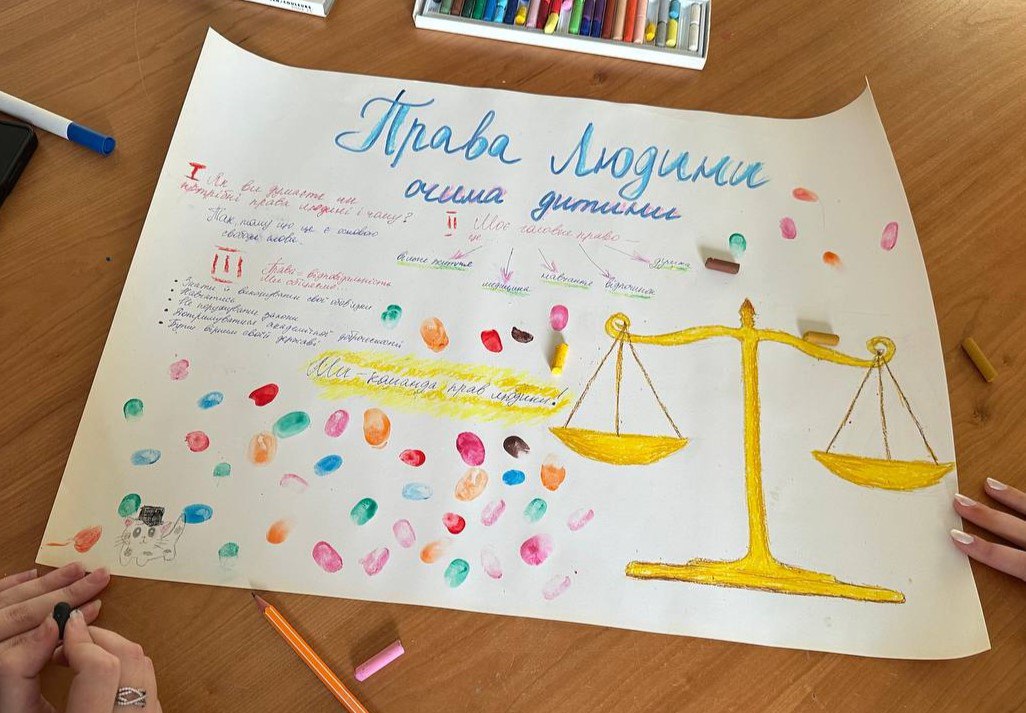 Права Людини
очима дитини
I Як ви думаєте чи
потрібні права людині і чому?
Так, тому що це є основою
свободи слова.
II Моє головне право —
це...
вільне життя
медицина
навчання
відпочинок
думка
III Права = відповідальність
Ми обіцяємо...
• Знати й виконувати свої обов'язки
• Навчатись
• Не порушувати закони
• Дотримуватися академічної доброчесності
• Бути вірним своїй державі
Ми – команда прав людини!